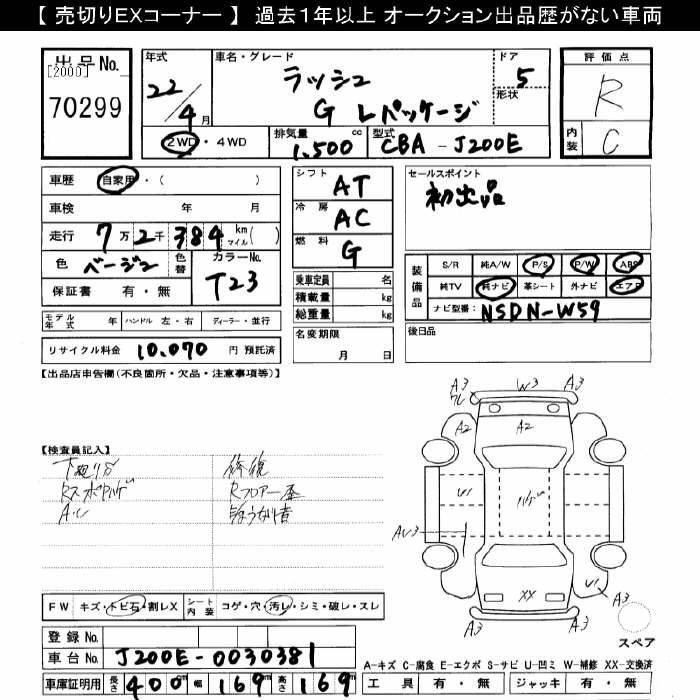 【 売切りEXコーナー 】 過去1年以上 オークション出品歴がない車両
出品No.
[2000]
70299
年式
22/4月
車名・グレード
ラッシュ
G Lパッケージ
ドア
5
形状
評価点
R
内装
C
2WD・4WD
排気量
1,500 cc
型式
CBA-J200E
車歴 自家用・( )
車検 年 月
走行 7万2千384 km マイル( )
色 ベージュ
色替
カラーNo.
T23
保証書 有・無
モデル年式 年
ハンドル 左・右
ディーラー・並行
リサイクル料金 10,070 円 預託済
シフト AT
冷房 AC
燃料 G
乗車定員 名
積載量 kg
総重量 kg
名変期限
月 日
セールスポイント
初出品
装備品
S/R 純A/W P/S P/W ABS
純TV 純ナビ 革シート 外ナビ エアB
ナビ型番: NSDN-W59
後日品
【出品店申告欄(不良箇所・欠品・注意事項等)】
【検査員記入】
下廻りサビ
A・C
修復
Rフロアー歪
A3
W3
A3
ワレ
A2
A2
U1
A3
XX
U1
A3
A3
A3
スペア
FW キズ・トビ石・割レX
シート内装 コゲ・穴・汚レ・シミ・破レ・スレ
登録No.
車台No. J200E-0030381
車庫証明用 長さ 400 cm 幅 169 cm 高さ 169 cm
A-キズ C-腐食 E-エクボ S-サビ U-凹ミ W-補修 XX-交換済
工具 有・無 ジャッキ 有・無